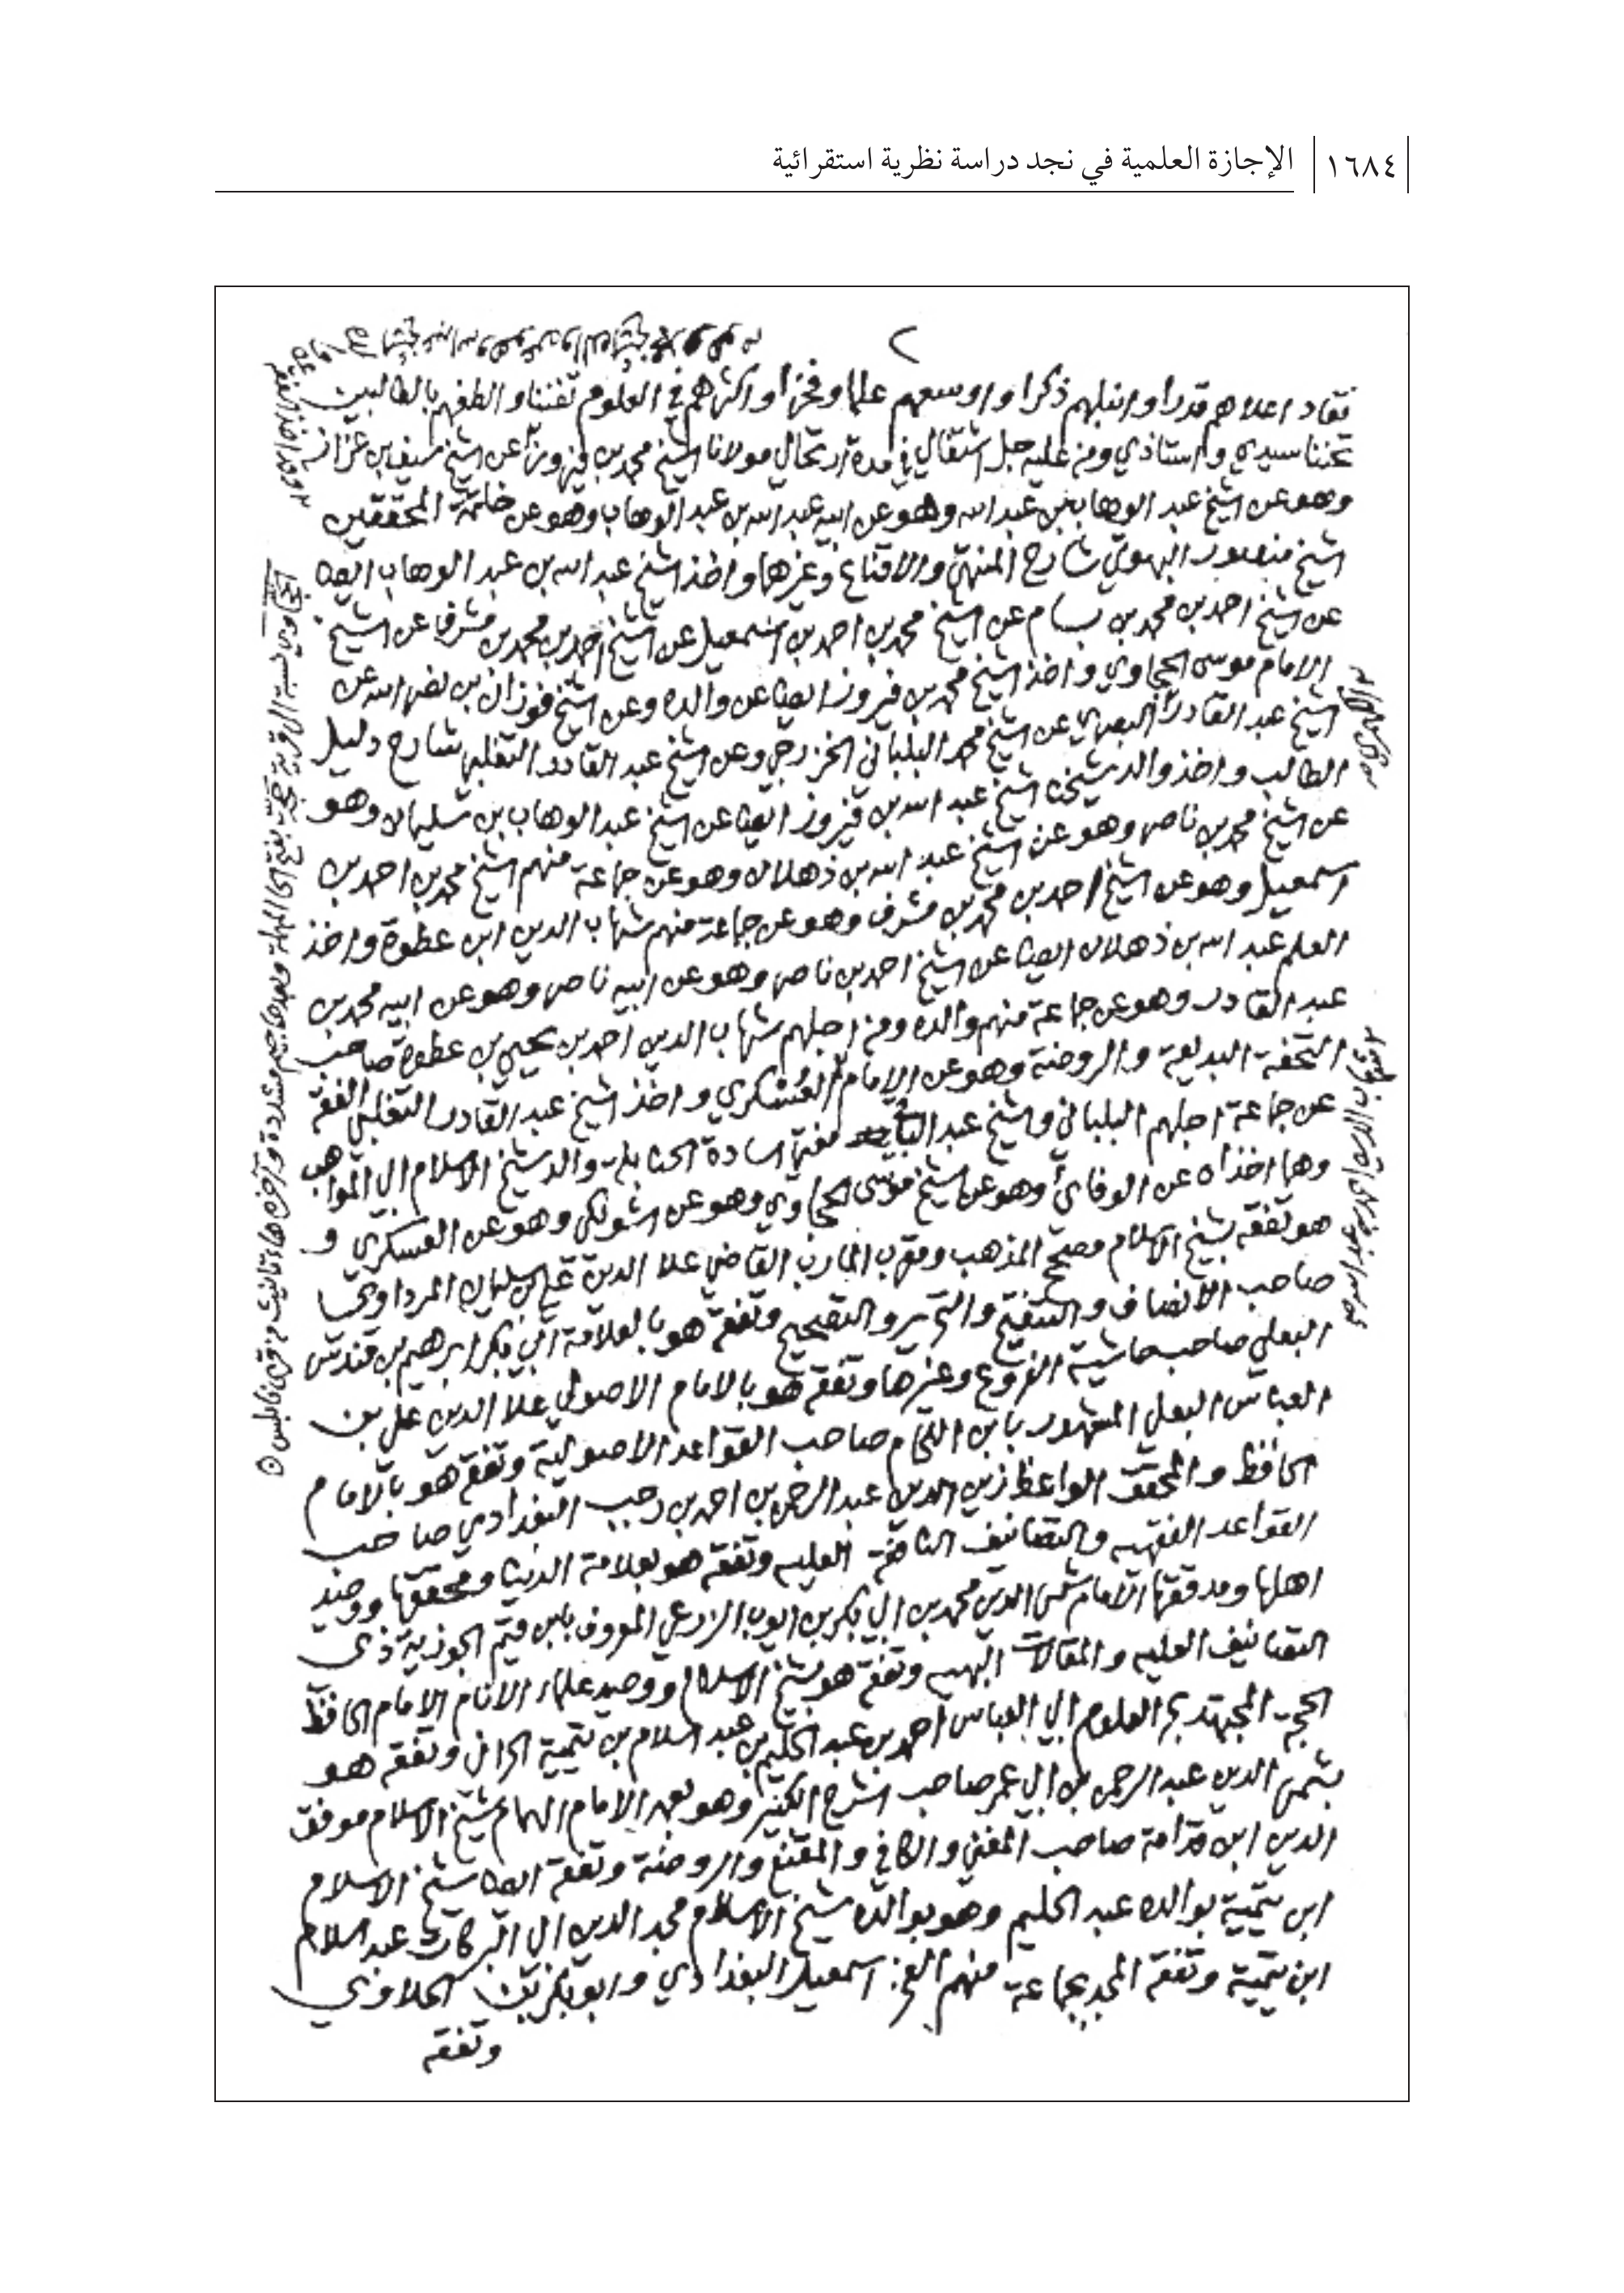 ١٦٨٤ الإجازة العلمية في نجد دراسة نظرية استقرائية
٢
نقاد اعلاهم قدرا وانبلهم ذكرا واوسعهم علما وفخرا واكثرهم في العلوم تفننا والطفهم بالطالبين
تحننا سيدي واستاذي ومن عليه جل اشتغالي في مدة ارتحالي مولانا الشيخ محمد بن فيروز عن الشيخ سيف بن عزاز
وهو عن الشيخ عبد الوهاب بن عبد الله وهو عن ابيه عبد الله بن عبد الوهاب وهو عن خاتمة المحققين
الشيخ منصور البهوتي شارح المنتهى والاقناع وغيرهما واخذ الشيخ عبد الله بن عبد الوهاب ايضا
عن الشيخ احمد بن محمد بن بسام عن الشيخ محمد بن احمد بن اسمعيل عن الشيخ احمد بن محمد بن مشرف عن الشيخ
الامام موسى الحجاوي واخذ الشيخ محمد بن فيروز ايضا عن والده وعن الشيخ فوزان بن نصر الله عن
الشيخ عبد القادر البصري عن الشيخ محمد البلباني الخزرجي وعن الشيخ عبد القادر التغلبي شارح دليل
الطالب واخذ والد شيخنا الشيخ عبد الله بن فيروز ايضا عن الشيخ عبد الوهاب بن سليمان وهو
عن الشيخ محمد بن ناصر وهو عن الشيخ عبد الله بن ذهلان وهو عن جماعة منهم الشيخ محمد بن احمد بن
اسمعيل وهو عن الشيخ احمد بن محمد بن مشرف وهو عن جماعة منهم شهاب الدين ابن عطوة واخذ
العلم عبد الله بن ذهلان ايضا عن الشيخ احمد بن ناصر وهو عن ابيه ناصر وهو عن ابيه محمد بن
عبد القادر وهو عن جماعة منهم والده ومن اجلهم شهاب الدين احمد بن يحيى بن عطوة صاحب
التحفة البديعة والروضة وهو عن الامام العسكري واخذ الشيخ عبد القادر التغلبي الفقه
عن جماعة اجلهم البلباني والشيخ عبد الباقي مفتي السادة الحنابلة والد شيخ الاسلام ابي المواهب
وهما اخذاه عن الوفائي وهو عن الشيخ موسى الحجاوي وهو عن الشويكي وهو عن العسكري و
هو تفقه بشيخ الاسلام مصحح المذهب القاضي علا الدين علي بن سليمان المرداوي
صاحب الانصاف والتنقيح والتحرير والتصحيح وتفقه هو بالعلامة ابي بكر ابرهيم بن قندس
البعلي صاحب حاشية الفروع وغيرها وتفقه هو بالامام الاصولي علا الدين علي بن
العباس البعلي المشهور بابن اللحام صاحب القواعد الاصولية وتفقه هو بالامام
الحافظ والمحقق الواعظ زين الدين عبد الرحمن بن احمد بن رجب البغدادي صاحب
القواعد الفقهيه والتصانيف النافعة العليه وتفقه هو بعلامة الدنيا ومحققها ووحيد
اهلها ومدققها الامام شمس الدين محمد بن ابي بكر بن ايوب الزرعي المعروف بابن قيم الجوزية ذي
التصانيف العليه والمقالات البهيه وتفقه هو بشيخ الاسلام ووحيد علماء الانام الامام الحافظ
الحجة المجتهد بحر العلوم ابي العباس احمد بن عبد الحليم بن عبد السلام بن تيمية الحراني وتفقه هو
بشمس الدين عبد الرحمن بن ابي عمر صاحب الشرح الكبير وهو بعمه الامام الهمام شيخ الاسلام موفق
الدين ابن قدامة صاحب المغني والكافي والمقنع والروضة وتفقه ايضا شيخ الاسلام
ابن تيمية بوالده عبد الحليم وهو بوالده شيخ الاسلام مجد الدين ابي البركات عبد السلام
ابن تيمية وتفقه المجد بجماعة منهم الفخر اسمعيل البغدادي وابو بكر بن الحلاوي
وتفقه
حجاوي نسبة الى قرية حجة بفتح الحا المهملة وبعدها جيم مشددة وآخره هاء تانيث من قرى نابلس